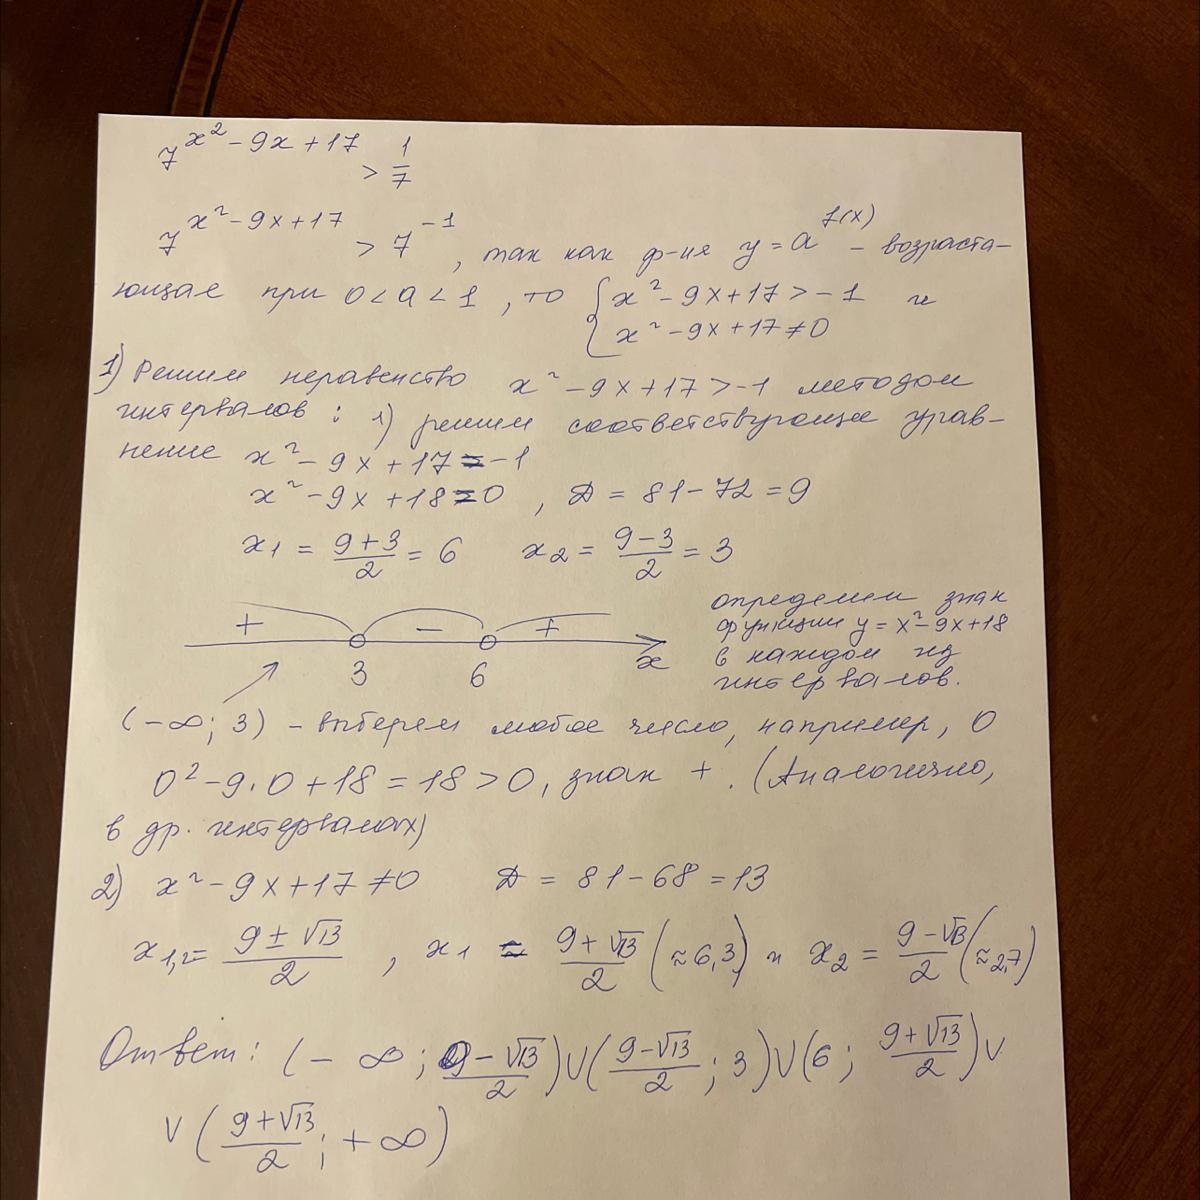 7^(x²-9x+17) > 1/7
7^(x²-9x+17) > 7^(-1), так как ф-ия y = a^(f(x)) - возраста-
ющае при 0 < a < 1, то { x²-9x+17 > -1 и
x²-9x+17 ≠ 0
1) Решим неравенство x²-9x+17 > -1 методом
интервалов: 1) решим соответствующее урав-
нение x²-9x+17 = -1
x²-9x+18 = 0, D = 81-72 = 9
x₁ = (9+3)/2 = 6 x₂ = (9-3)/2 = 3
+ - + x
3 6
определим знак
функции y = x²-9x+18
в каждом из
интервалов.
(-∞; 3) - выберем любое число, например, 0
0²-9·0+18 = 18 > 0, знак +. (Аналогично,
в др. интервалах)
2) x²-9x+17 ≠ 0 D = 81-68 = 13
x₁,₂ = (9±√13)/2, x₁ = (9+√13)/2 (≈6,3) и x₂ = (9-√13)/2 (≈2,7)
Ответ: (-∞; (9-√13)/2) ∪ ((9-√13)/2; 3) ∪ (6; (9+√13)/2) ∪
∪ ((9+√13)/2; +∞)